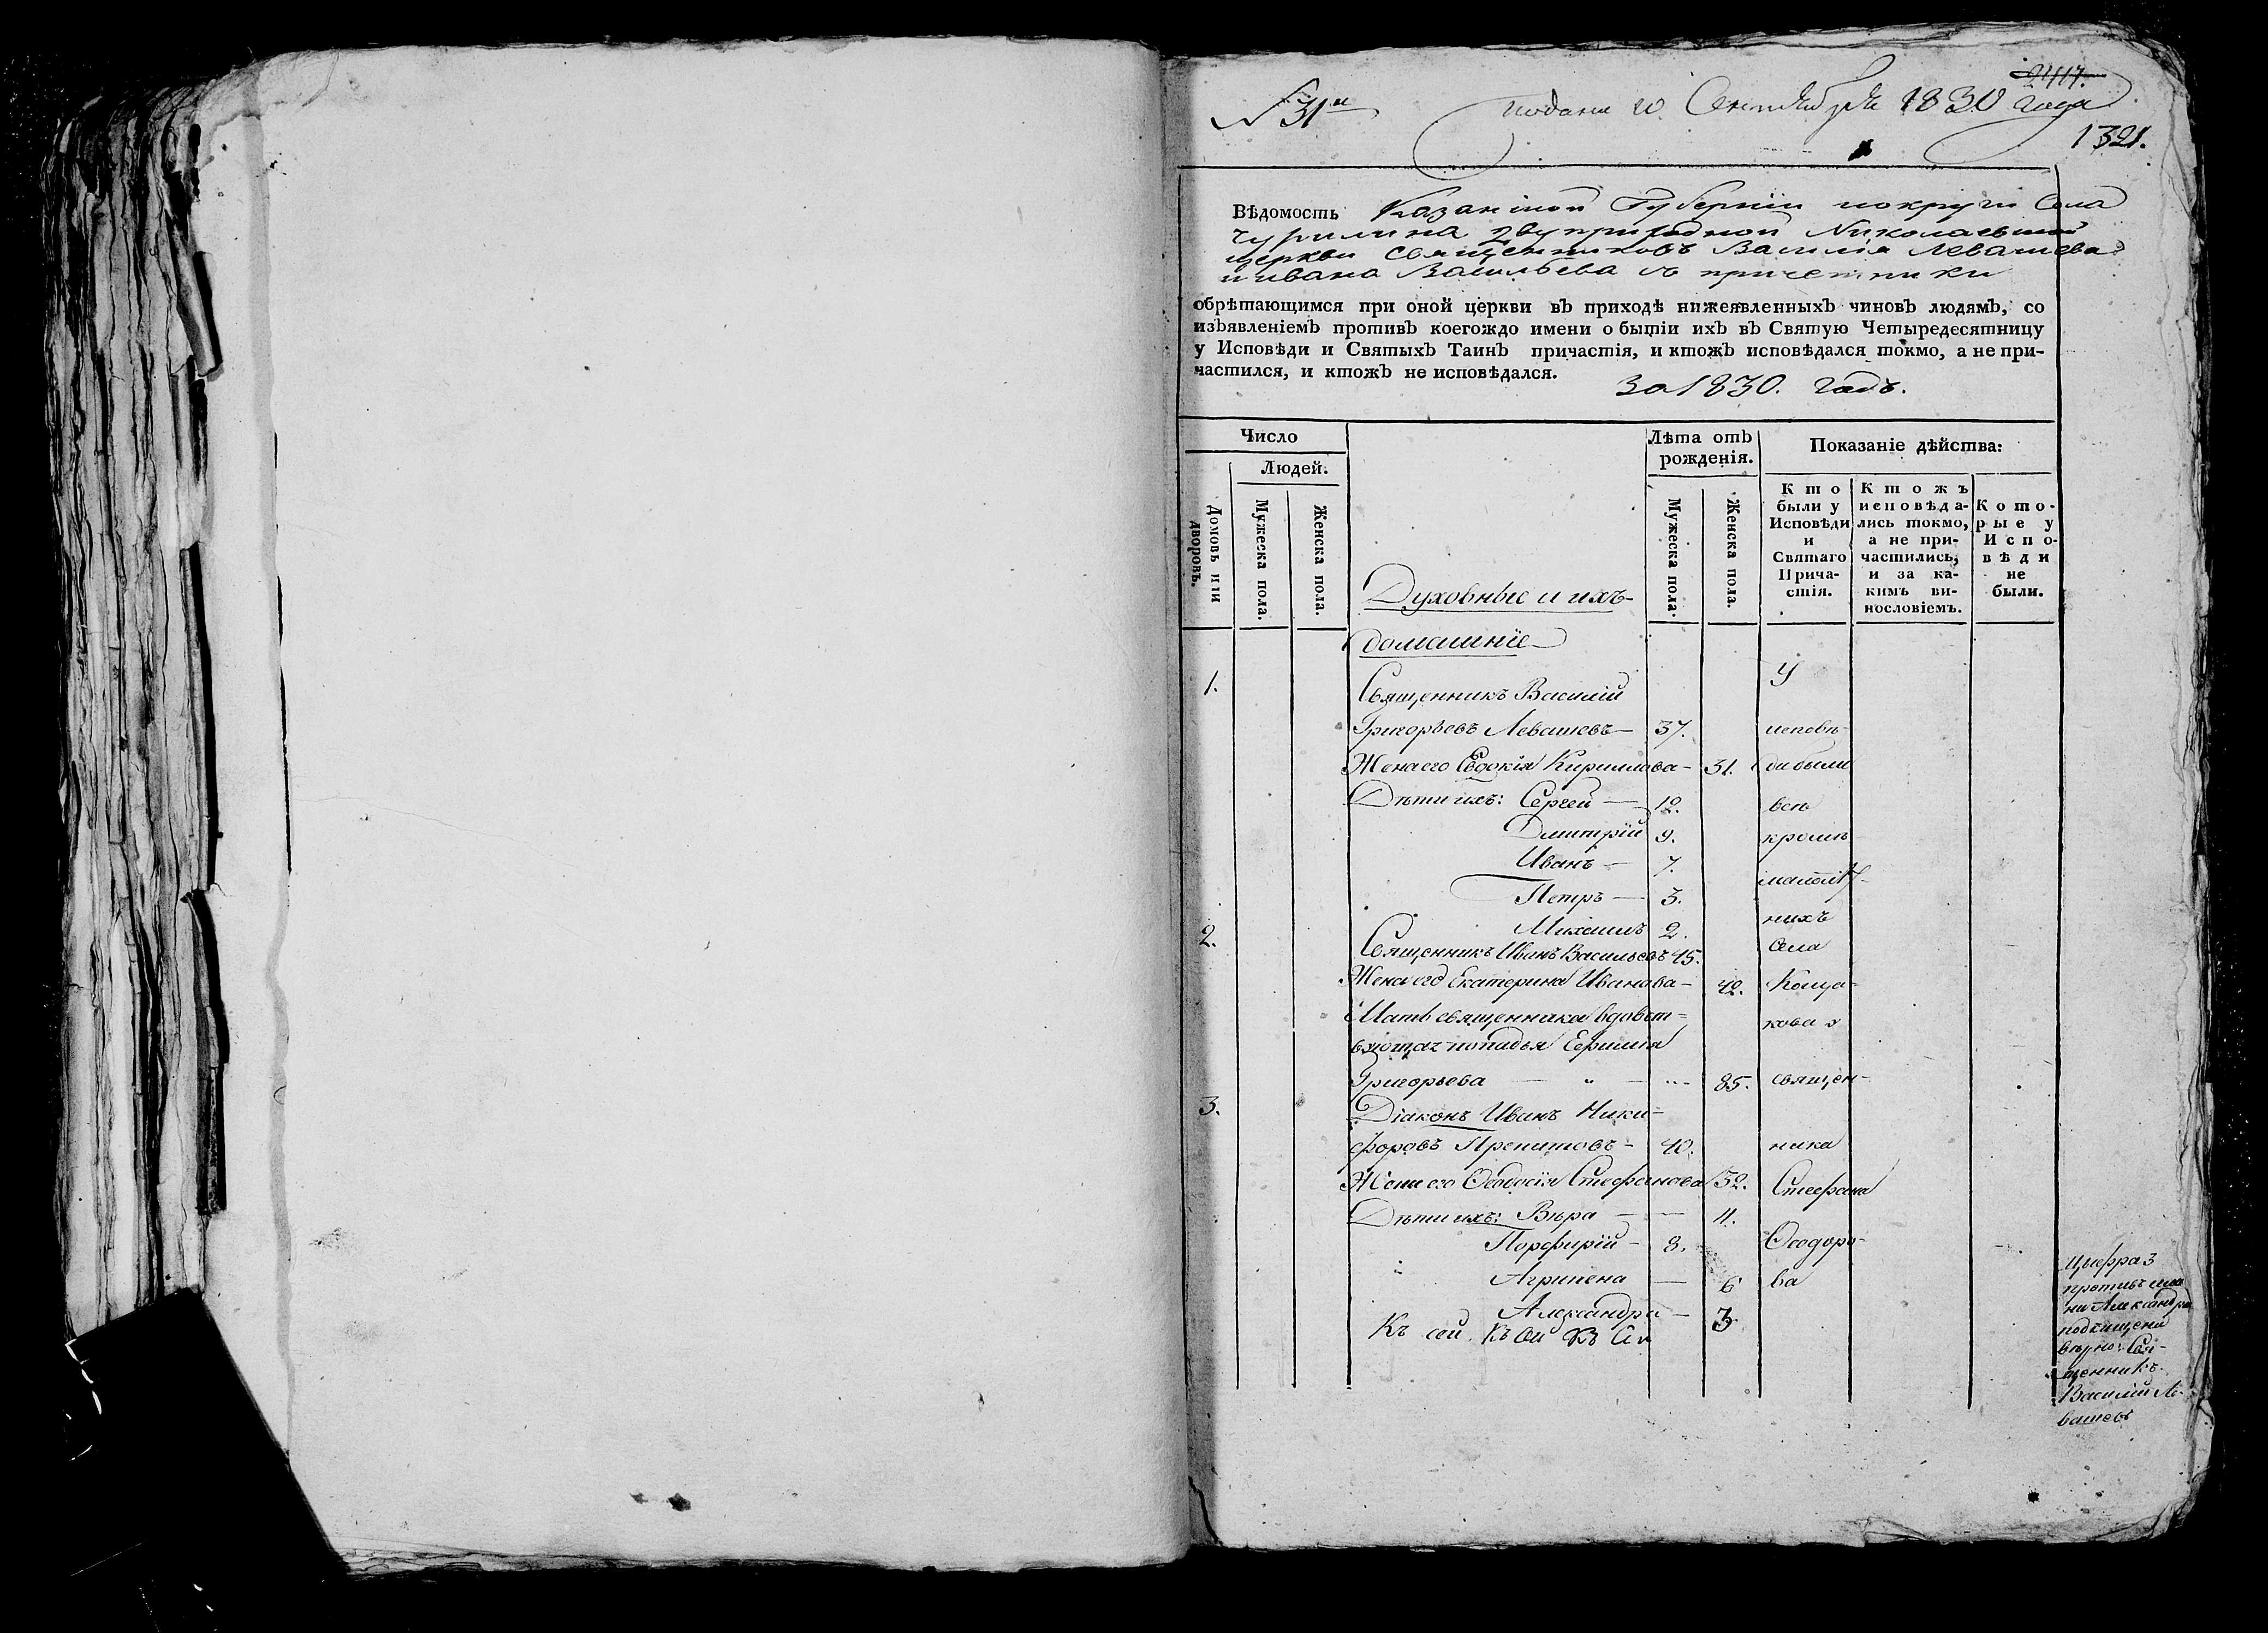 № 31й
подана 10. Сентября 1830 года
2417.
1321.
Вѣдомость Казанской Губернiи и округи Села
Чурилина двуприходной Николаевской
церкви священниковъ Василiя Левашева
и ивана Васильева съ причетники
обрѣтающимся при оной церкви въ приходѣ нижеявленныхъ чиновъ людямъ, со
изъявленiемъ противъ коегождо имени о бытiи ихъ въ Святую Четыредесятницу
у Исповѣди и Святыхъ Таинъ причастiя, и ктожъ исповѣдался токмо, а не при-
частился, и ктожъ не исповѣдался.
за 1830. годъ.
Число
Людей.
Домовъ или дворовъ.
Мужеска пола.
Женска пола.
Лѣта отъ
рожденiя.
Мужеска пола.
Женска пола.
Показанiе дѣйства:
Кто
были у
Исповѣди
и
Святаго
Прича-
стiя.
Ктожъ
исповѣда-
лись токмо,
а не при-
частились,
и за ка-
кимъ ви-
нословiемъ.
Кото-
рые у
Испо-
вѣди
не
были.
Духовные и ихъ
домашнiе
1. Священникъ Василiй у
Григорьевъ Левашевъ — 37. исповѣ-
Жена его Евдокiя Кириллова — 31. ди были
Дѣти ихъ: Сергей — 12. всѣ
Дмитрiй 9. кромѣ
Иванъ — 7.
Петръ — 3. малолѣт-
Михаилъ 2. нихъ
2. Священникъ Иванъ Васильевъ 45. Села
Жена его Екатерина Иванова — 42. Коща-
Мать священника вдовст- кова у
вующая попадья Ефимiя
Григорьева — " — 85. священ-
3. Дiаконъ Иванъ Ники-
форовъ — 40. ника
Жена его Ѳеодосiя Стефанова 32. Стефана
Дѣти ихъ: Вѣра — 11.
Порфирiй — 8. Ѳеодоро-
Агрипена — 6 ва
Александра — 3
Къ сей Къ сей Къ сей
Цифра 3
противъ име
ни Александры
подчищена
вѣрно: Свя-
щенникъ
Василiй Ле-
вашевъ